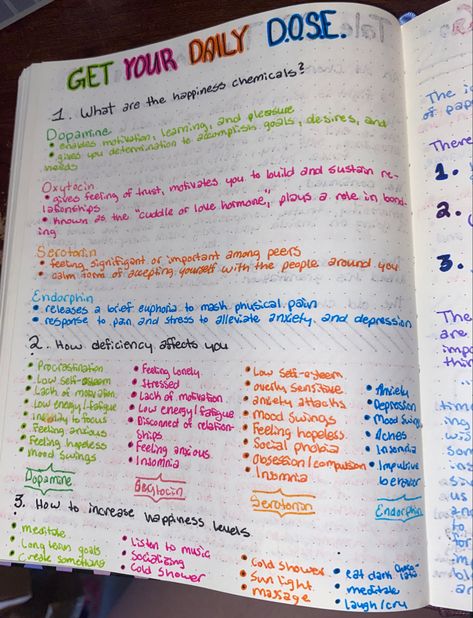 GET YOUR DAILY D.O.S.E.
1. What are the happiness chemicals?
Dopamine
• enables motivation, learning, and pleasure
• gives you determination to accomplish goals, desires, and
needs
Oxytocin
• gives feeling of trust, motivates you to build and sustain re-
lationships
• known as the "cuddle or love hormone", plays a role in bond-
ing
Serotonin
• feeling signifigant or important among peers
• calm form of accepting yourself with the people around you
Endorphin
• releases a brief euphoria to mask physical pain
• response to pain and stress to alleviate anxiety and depression
2. How deficiency affects you
• Procrastination
• Low self-esteem
• Lack of motivation
• Low energy/fatigue
• Inability to focus
• Feeling anxious
• Feeling hopeless
• Mood swings
Dopamine
• Feeling lonely
• Stressed
• Lack of motivation
• Low energy/fatigue
• Disconnect of relation-
ships
• Feeling anxious
• Insomnia
Oxytocin
• Low self-esteem
• overly sensitive
• anxiety attacks
• mood swings
• Feeling hopeless
• Social phobia
• Obsession/compulsion
• Insomnia
Serotonin
• Anxiety
• Depression
• Mood swings
• Aches
• Insomnia
• Impulsive
behavior
Endorphin
3. How to increase happiness levels
• meditate
• Long term goals
• Create something
• Listen to music
• Socializing
• Cold shower
• Cold shower
• Sun light
• massage
• eat dark chocolate
• meditate
• laugh/cry
The
of
There
1.
2.
3.
The
are